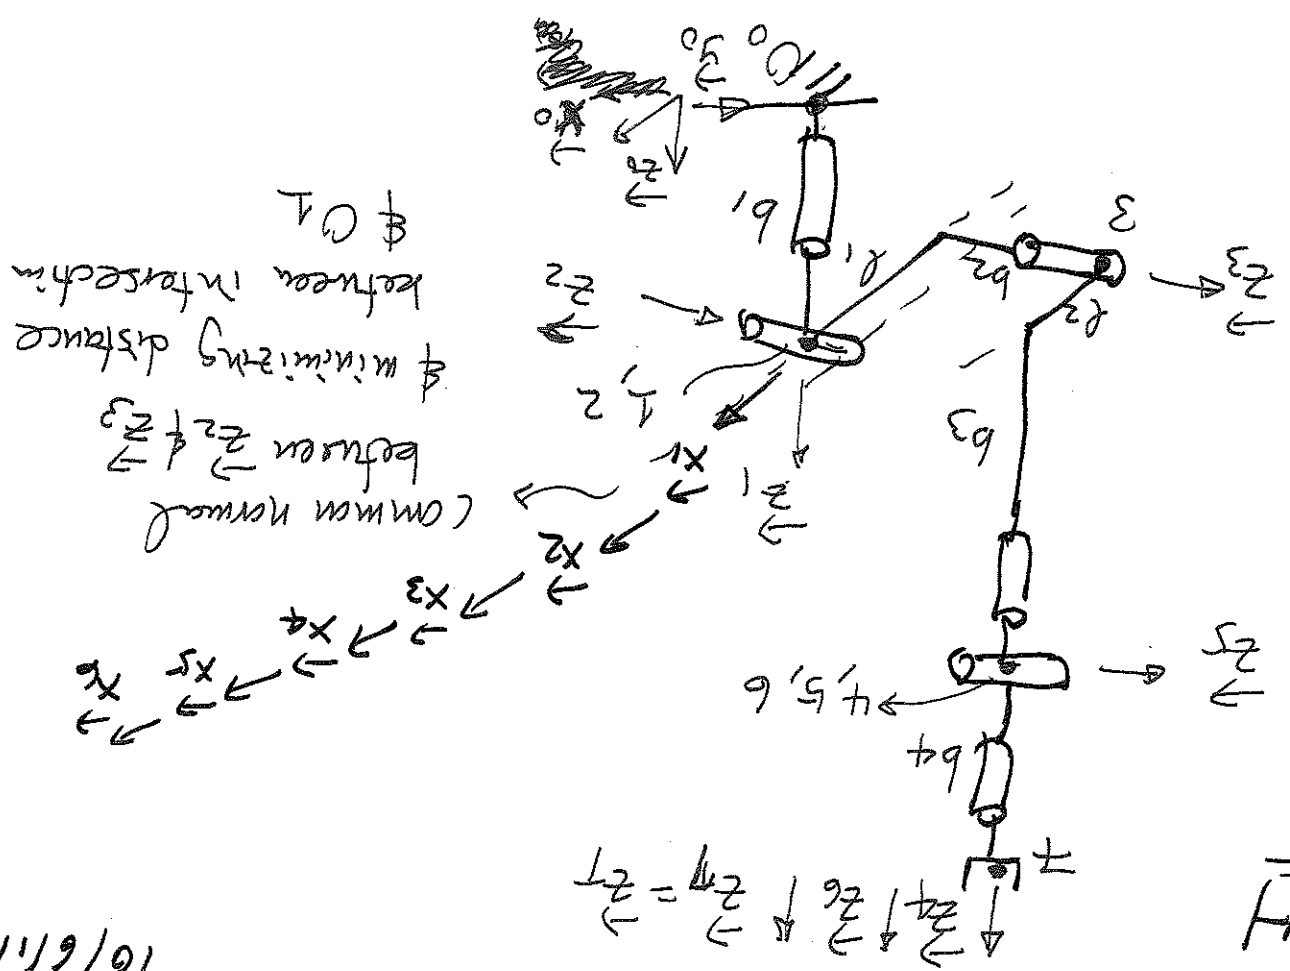 10/6/11
z⃗4 z⃗6 z⃗7 = z⃗T
7
b4
4, 5, 6
z⃗5
x⃗6
x⃗5
x⃗4
x⃗3
x⃗2
Common normal
between z⃗2 & z⃗3
& minimizing distance
between intersection
& O1
x⃗1
z⃗1
b3
1, 2
l2
z⃗3
z⃗2
b2
l1
3
b1
z⃗0
x⃗0
y⃗0
O0